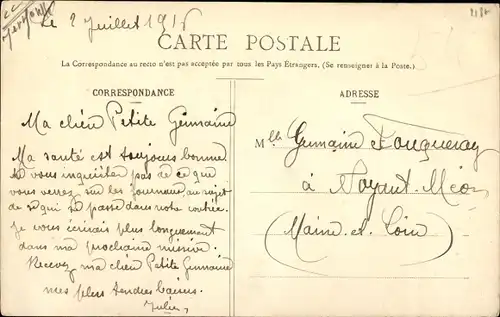 Le 2 Juillet 191
CARTE POSTALE
La Correspondance au recto n'est pas acceptée par tous les Pays Étrangers. (Se renseigner à la Poste.)
CORRESPONDANCE
Ma chien Petite Germaine
Ma santé est toujours bonne
ne vous inquiéter pas de ce que
vous verrez sur les journaux au sujet
de se qui se passe dans notre contrée.
Je vous écrirais plus longuement
dans ma prochaine mission.
Recevez ma chien Petite Germaine
mes plus tendres baisers.
Julien
ADRESSE
Mlle Germaine Fouqueray
à Noyant-Méon
(Maine-et-Loire)